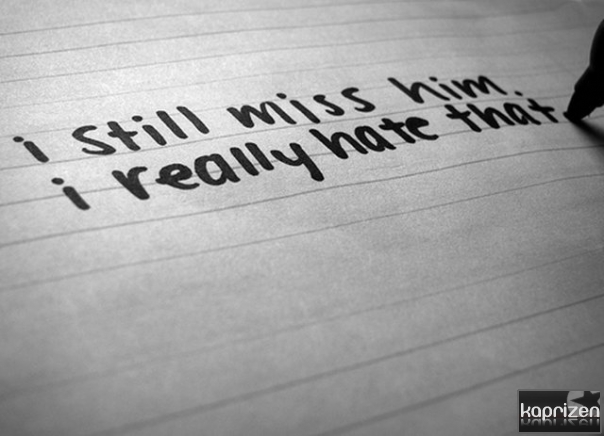 i still miss him.
i really hate that.
kaprizen